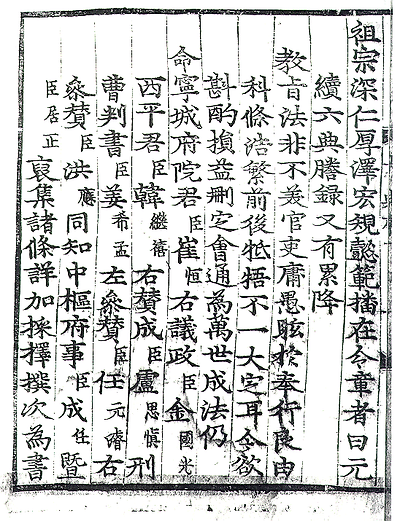 祖宗深仁厚澤宏規懿範播在令章者曰元
續六典謄錄又有累降
教旨法非不美官吏庸愚眩於奉行良由
科條浩繁前後牴牾不一大定耳今欲
斟酌損益刪定會通為萬世成法仍
命寧城府院君臣崔恒右議政臣金國光
西平君臣韓繼禧右贊成臣盧思愼刑
曹判書臣姜希孟左叅贊臣任元濬右
叅贊臣洪應同知中樞府事臣成任曁
臣居正裒集諸條詳加採擇撰次為書